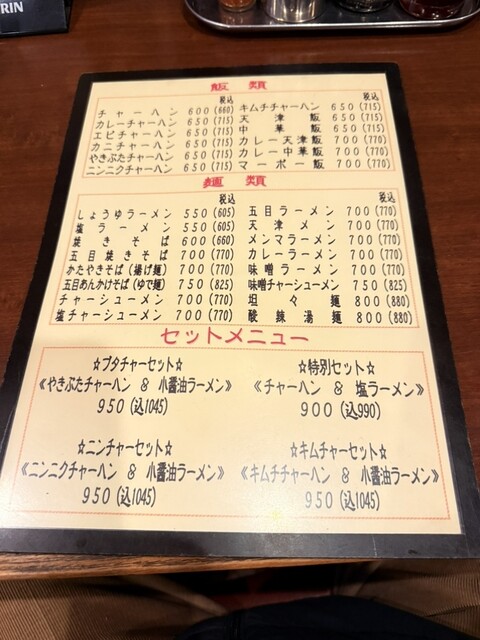 RIN
飯 類
税込
チャーハン 600 (660)
カレーチャーハン 650 (715)
エビチャーハン 650 (715)
カニチャーハン 650 (715)
やきぶたチャーハン 650 (715)
ニンニクチャーハン 650 (715)
税込
キムチチャーハン 650 (715)
天津飯 650 (715)
中華飯 650 (715)
カレー天津飯 700 (770)
カレー中華飯 700 (770)
マーボー飯 700 (770)
麺 類
税込
しょうゆラーメン 550 (605)
塩ラーメン 550 (605)
焼きそば 600 (660)
五目焼きそば 700 (770)
かたやきそば (揚げ麺) 700 (770)
五目あんかけそば (ゆで麺) 750 (825)
チャーシューメン 700 (770)
塩チャーシューメン 700 (770)
税込
五目ラーメン 700 (770)
天津メン 700 (770)
メンマラーメン 700 (770)
カレーラーメン 700 (770)
味噌ラーメン 700 (770)
味噌チャーシューメン 750 (825)
坦々麺 800 (880)
酸辣湯麺 800 (880)
セットメニュー
☆ブタチャーセット☆
《やきぶたチャーハン & 小醤油ラーメン》
950 (込1045)
☆特別セット☆
《チャーハン & 塩ラーメン》
900 (込990)
☆ニンチャーセット☆
《ニンニクチャーハン & 小醤油ラーメン》
950 (込1045)
☆キムチャーセット☆
《キムチチャーハン & 小醤油ラーメン》
950 (込1045)